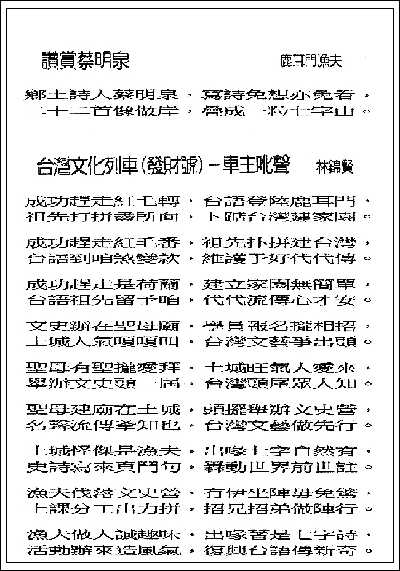 讚賞蔡明泉 鹿耳門漁夫
鄉土詩人蔡明泉，寫詩免想亦免看，
二十二首像做岸，疊成一粒七字山。
台灣文化列車(發財號)－車主吼聲 林錦賢
成功趕走紅毛轉，台語登陸鹿耳門，
祖先打拼 所向，下 台灣建家園。
成功趕走紅毛番，祖先打拼建台灣，
台語到咱 變款，維護了好代代傳。
成功趕走是荷蘭，建立家園無簡單，
台語祖先留予咱，代代流傳心才安。
文史辦在聖母廟，學員報名攏相招，
土城人氣嘎嘎叫，台灣文藝爭出頭。
聖母有聖攏愛拜，土城旺氣人愛來，
舉辦文史頭一屆，台灣頭尾眾人知。
聖母建廟在土城，頭擺舉辦文史營，
名 流傳 知也，台灣文藝做先行。
土城怪傑是漁夫，出喙七字自然有，
史詩寫來 鬥句，轟動世界前世註。
漁夫 文史營，有伊坐陣毋免驚，
上課分工出力拼，招兄招弟做陣行。
漁夫做人誠趣味，出喙著是七字詩，
活動辦來造風氣，復興台語傳新奇。